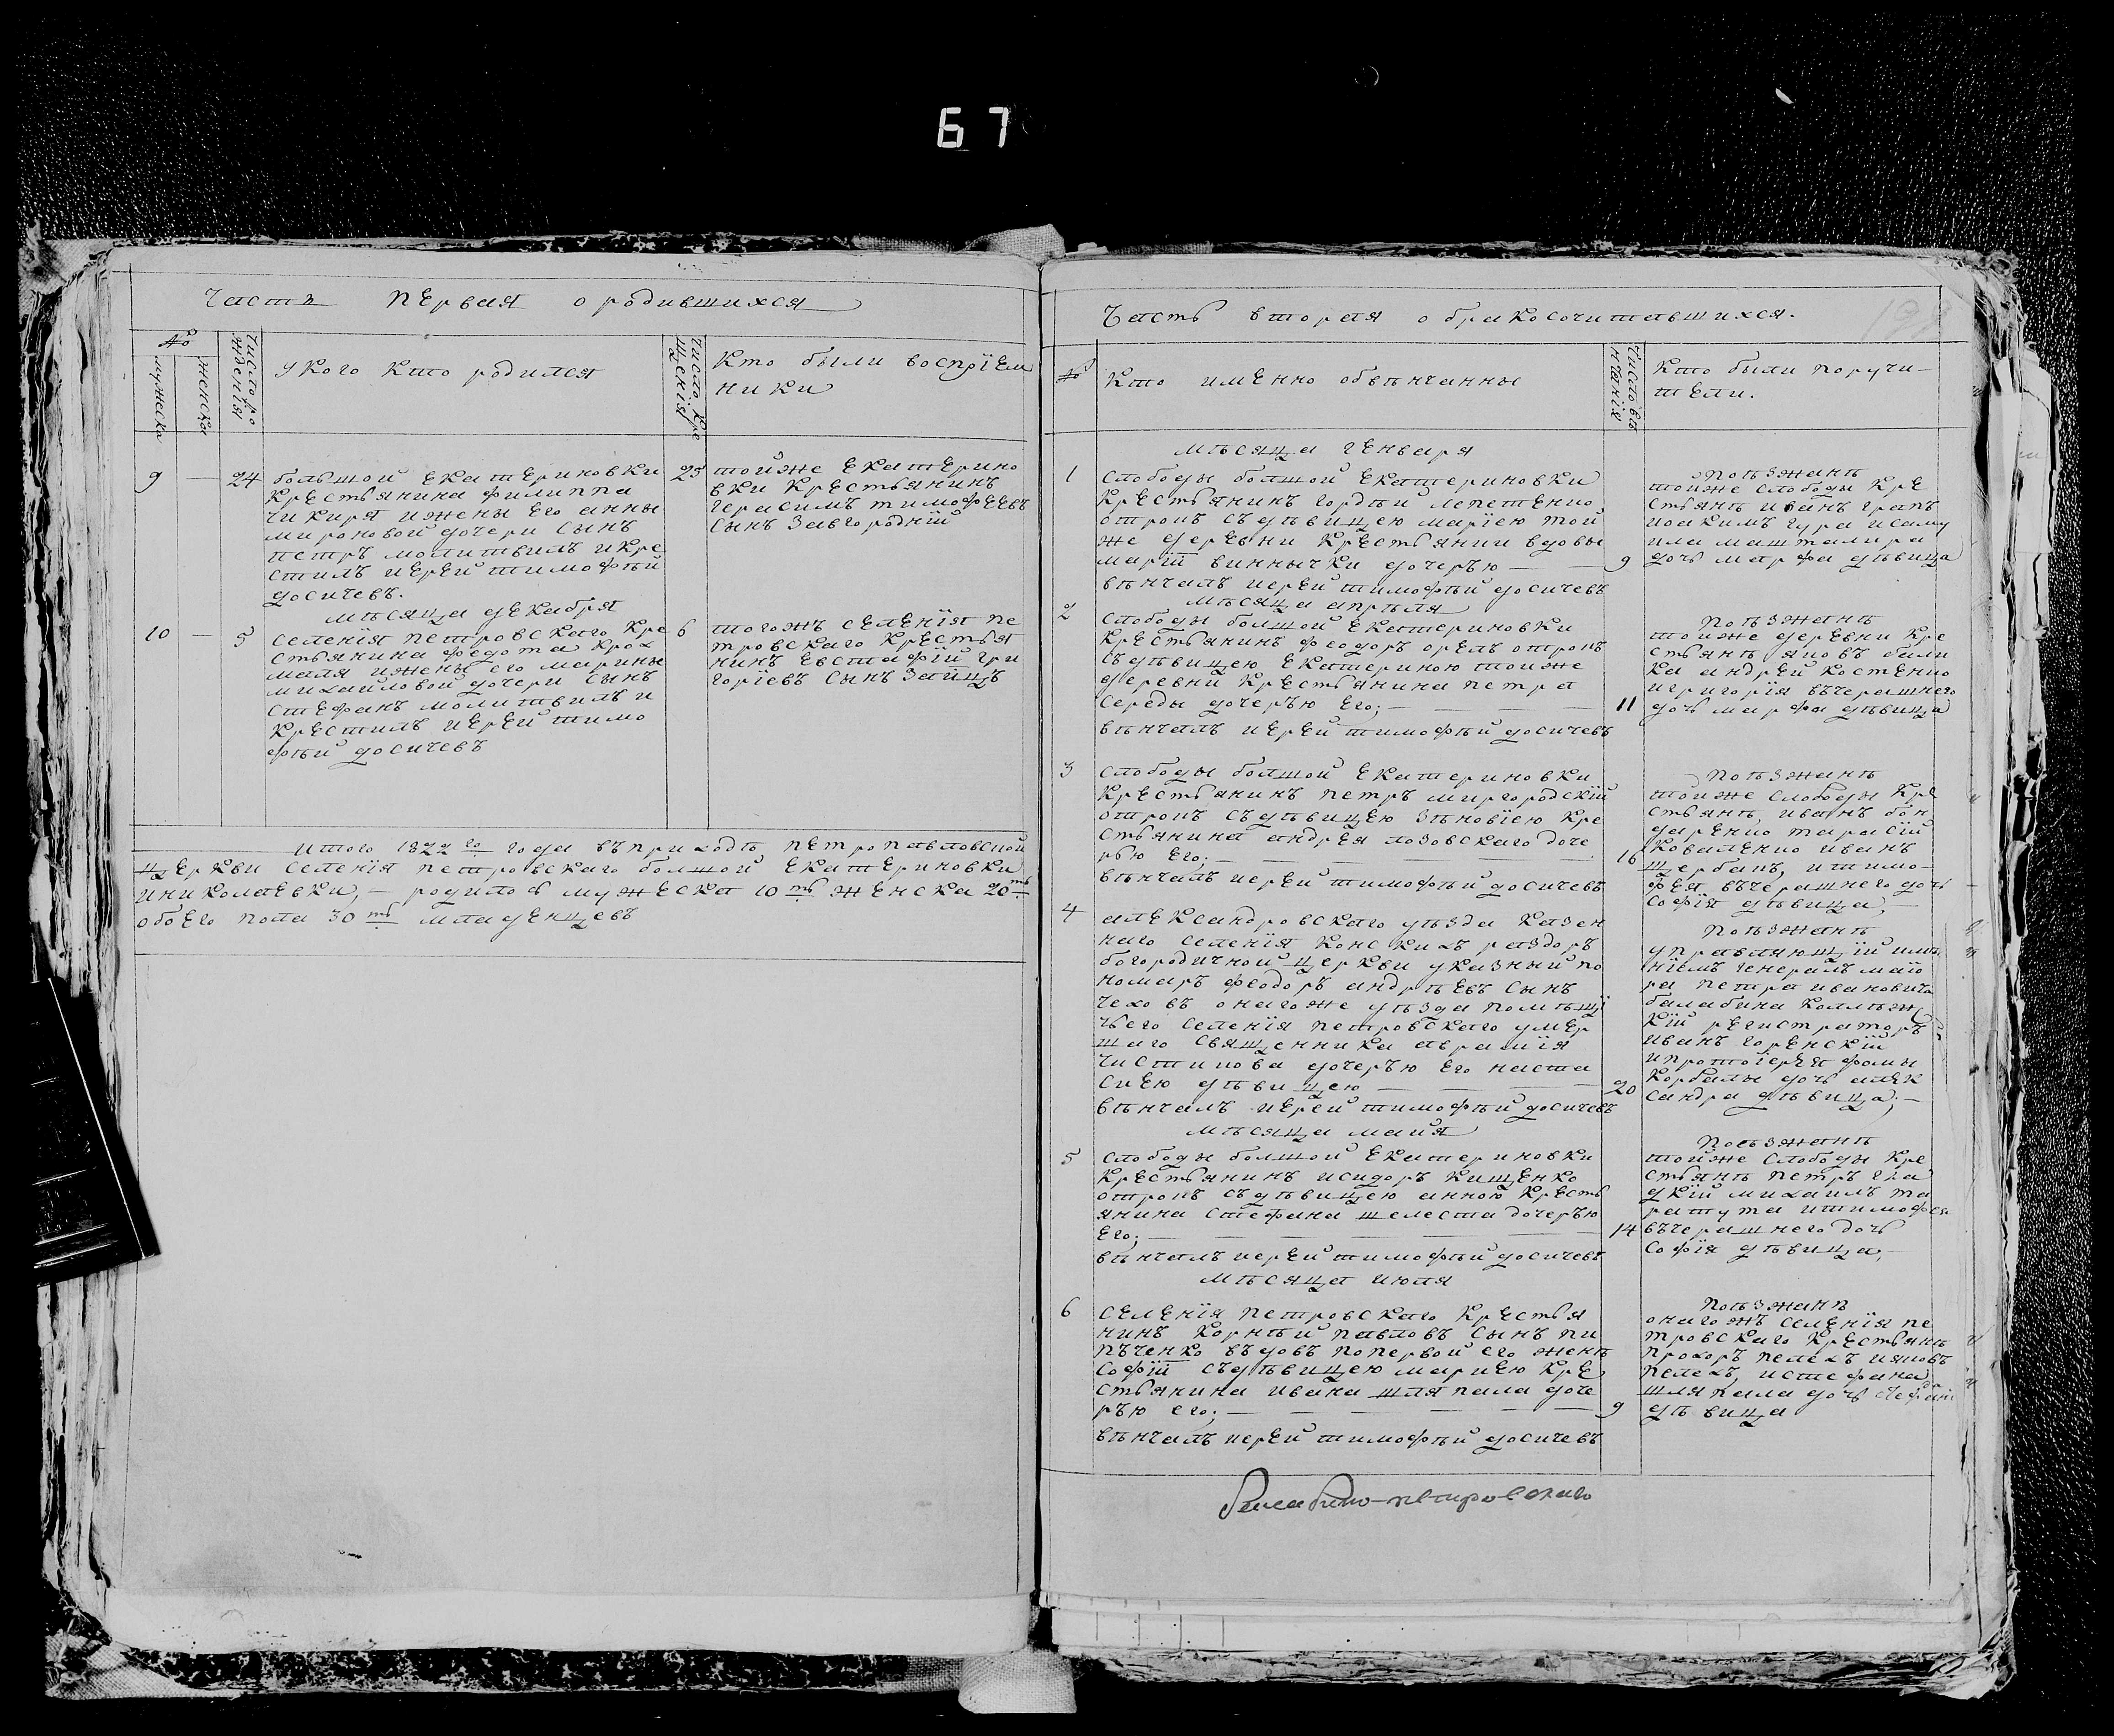 67
Часть первая о родившихся
№
мужеска
женска
Число ро
жденія
у кого кто родился
Число кре
щенія
Кто были воспріем
ники
9 — 24
большой Екатериновки
крестьянина филиппа
чикиря и жены его анны
мироновой дочери сынъ
петръ молитвилъ и кре
стилъ иерей тимофѣй
досичевъ.
25
тойже Екатерино
вки крестьянинъ
герасимъ тимофеевъ
сынъ Завгородній
мѣсяца декабря
10 — 5
селенія петровскаго кре
стьянина федота крох
маля и жены его марины
михайловой дочери сынъ
стефанъ молитвилъ и
крестилъ иерей тимо
фѣй досичевъ
6
тогожъ селенія пе
тровскаго крестья
нинъ Евстафій гри
горіевъ сынъ Заецъ
итого 1822го года въ приходѣ петропавловской
церкви селенія петровскаго болшой Екатериновки
и николаевки, — родилось мужеска 10ть женска 20ть
обоего пола 30ть младенцевъ
Часть вторая о бракосочитавшихся.
№
Кто именно обвѣнчанны
Число вѣ
нчанія
Кто были поручи—
тели.
мѣсяца генваря
1
слободы болшой Екатериновки
крестьянинъ гордѣй лепетенко
отрокъ съ дѣвицею маріею той
же деревни крестьянки вдовы
маріи виннычки дочерью —
вѣнчалъ иерей тимофѣй досичевъ
9
Поѣзжанѣ
тойже слободы кре
стьянѣ иванъ гракъ
иоакимъ гура и саму
ила машталира
дочь марфа дѣвица
мѣсяца апрѣля
2
слободы болшой Екатериновки
крестьянинъ феодоръ орелъ отрокъ
съ дѣвицею Екатериною тойже
деревни крестьянина петра
середы дочерью его; —
вѣнчалъ иерей тимофѣй досичевъ
11
Поѣзжанѣ
тойже деревни кре
стьянѣ яковъ били
ка андрей костенко
и григорія вѣчерашнего
дочь марфа дѣвица
3
слободы болшой Екатериновки
крестьянинъ петръ миргородскій
отрокъ съ дѣвицею Зѣновіею кре
стьянина андрея лозовскаго доче
рью его; —
вѣнчалъ иерей тимофѣй досичевъ
16
Поѣзжанѣ
тойже слободы кре
стьянѣ, иванъ бон
даренко тарасій
коваленко иванъ
щербакъ, и тимо—
фея вѣчерашнего дочь
софія дѣвица; —
4
александровскаго уѣзда казен
наго селенія конскихъ раздоръ
богородичной церкви указный по
номарь феодоръ андрѣевъ сынъ
чехо въ онагоже уѣзда помѣщи
чьего селенія петровскаго умер
шаго священника аврамія
чистикова дочерью его наста
сиею дѣвицею —
вѣнчалъ иерей тимофѣй досичевъ
20
Поѣзжанѣ
управляющій имѣ
ніемъ генералъ маіо
ра петра ивановича
балабина коллѣж
кій регистраторъ
иванъ горенскій
и протоіерея фомы
корбалы дочь алек
сандра дѣвица; —
мѣсяца майя
5
слободы болшой Екатериновки
крестьянинъ исидоръ кищенко
отрокъ съ дѣвицею анною кресть
янина стефана шелеста дочерью
его; —
вѣнчалъ иерей тимофѣй досичевъ
14
Поезжанѣ
тойже слободы кре
стьянѣ петръ гла
дкій михаилъ та
ратута и тимофея
вѣчерашнего дочь
софія дѣвица, —
мѣсяца июля
6
селенія петровскаго крестья
нинъ корнѣй павловъ сынъ пи
пѣченко въдовъ по первой его женѣ
софіи съ дѣвицею мариею кре
стьянина ивана шляпала доче
рью его; —
вѣнчалъ иерей тимофѣй досичевъ
9
поѣзжанѣ
онагожъ селенія пе
тровскаго крестьянѣ
прохоръ пелехъ и яковъ
пелехъ, и стефана
шляпала дочь
дѣвица